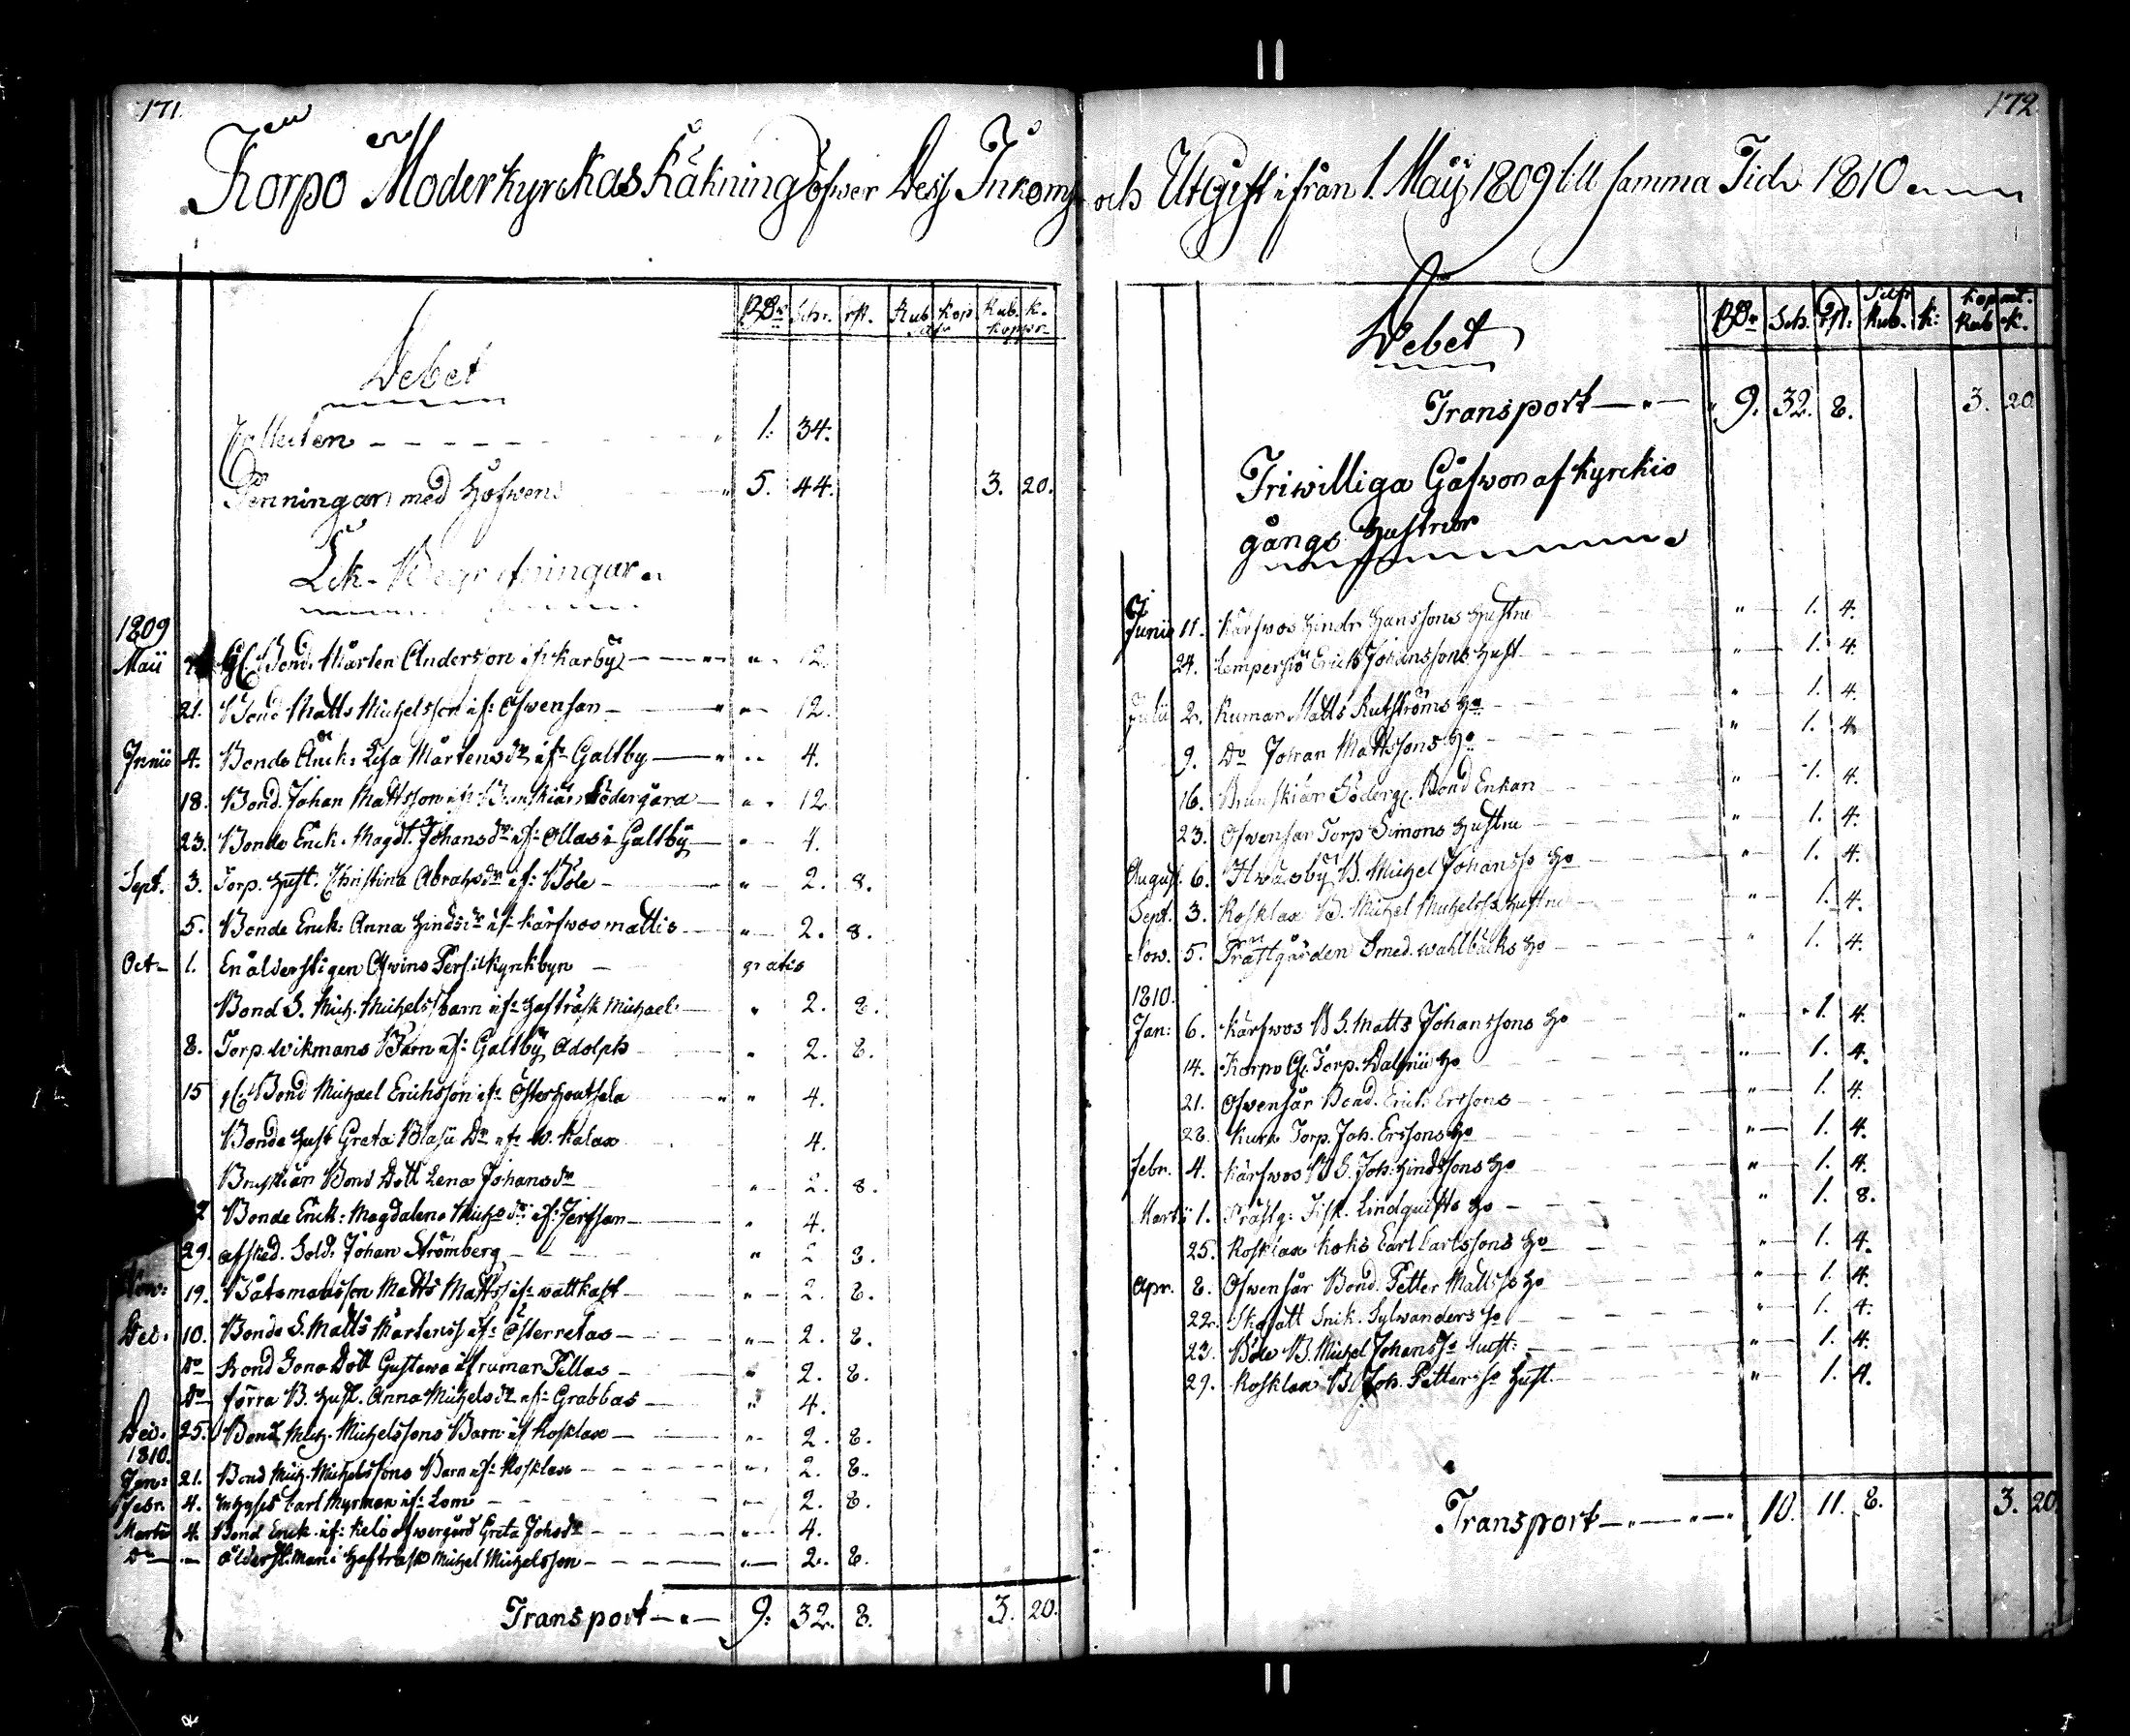 171.
Korpo Moderkyrckas Räkning öfwer Dess Inkomst
RDr Sch. rst. Rub. Kop. Rub. K.
Silfr Koppr
Debet
Collecten 1. 34.
Penningar med Håfwen 5. 44. 3. 20.
Lik-Begrafningar
1809
Maii Bond. Mårten Andersson if: Karby " 12.
21. Bond Matts Michelsson if: Ofwensor " 12.
Junii 4. Bonde Änck: Lisa Mårtensdr if: Galtby " 4.
18. Bond. Johan Mattsson if: Brunskiär Södergård " 12.
23. Bonde Enck. Magdl. Johansdr if: Ollas i Galtby " 4.
Sept. 3. Torp. Hust. Christina Abrahsdr if: Böle " 2. 8.
5. Bonde Enck: Anna Hindsdr if: Kärfwos mattis " 2. 8.
Oct. 1. En ålderstigen Qwins Pers. i Kyrckbyn gratis
Bond S. Mich. Michels Barn if: Hafträsk Michael " 2. 8.
8. Torp. Wikmans Barn if: Galtby Adolph " 2. 8.
15 gl: Bond Michael Erichsson if: Österhoutsala " 4.
Bonde Hust Greta Blasii Dr if: W. Kalax 4.
Bruskiär Bond Dott Lena Johansdr " 2. 8.
Bonde Enck: Magdalena Michsdr if: Jerfsor " 4.
29. afsked. Sold. Johan Strömberg " 2 8.
Now: 19. Båtsmansson Matts Matts if: wattkast " 2. 8.
Dec. 10. Bonde S. Matts Mårtenss if: Österretas " 2. 8.
Do Bond Sona Dott Gustawa if rumar Pellas " 2. 8.
Do förra B. Hust. Anna Michelsdr if: Grabbas " 4.
Dec. 25. Bond Mich. Michelssons Barn if Rosklax " 2. 8.
1810.
Jan: 21. Bond Mich. Michelssons Barn if: Rosklax " 2. 8.
Febr. 4. Inhyses Carl Myrman if: Lom " 2. 8.
Martii 4. Bond Enck. if: Kelö ofwergård Greta Johsdr " 4.
Do " ålderst. Man i Hafträsk Michel Michelsson " 2. 8.
Transport 9. 32. 8. 3. 20.
172
och Utgift ifrån 1. Maij 1809 till samma Tid 1810
RDr Sch. rst. Silfr Rub. K: Kop. mt. Rub K.
Debet
Transport 9. 32. 8. 3. 20
Friwilliga Gåfwor af Kyrckio
gångs Hustrur
Junii 11. Kärfwos Hindr. Hanssons Hustru " 1. 4.
24. Lempersiö Erich Johanssons Hust " 1. 4.
Julii 2. Rumar Matts Rutströms Ho " 1. 4.
9. Do Johan Mattssons Ho " 1. 4
16. Brunskiär Söderg. Bond Enkan " 1. 4.
23. Ofwensor Torp Simons Hustru " 1. 4.
August. 6. Hwasby B. Michel Johansso Ho " 1. 4.
Sept. 3. Rosklax Bd. Michel Michelss Hustru " 1. 4.
Now. 5. Prästgården Smed. Wahlbäcks Ho " 1. 4.
1810.
Jan: 6. Kärfwos B S. Matts Johanssons Ho " 1. 4.
14. Korpo G. Torp. Dalmii Ho " 1. 4.
21. Ofwensår Bond. Erich Erssons " 1. 4.
28. Kurk Torp. Joh. Erssons Ho " 1. 4.
Febr. 4. Kärfwos B S. Joh: Hindssons Ho " 1. 4.
Martii 1. Prästg: Fisk. Lindquists Ho " 1. 8.
25. Rosklax Koks Carl Carlssons Ho " 1. 4.
Apr. 8. Ofwensår Bond. Petter Mattsso Ho " 1. 4.
22. Skofatt Snik. Sylwanders Ho " 1. 4.
23. Böle B. Michel Johansso hust: " 1. 4.
29. Rosklax B Joh. Petterss Hust. " 1. 4.
Transport 10. 11. 8. 3. 20